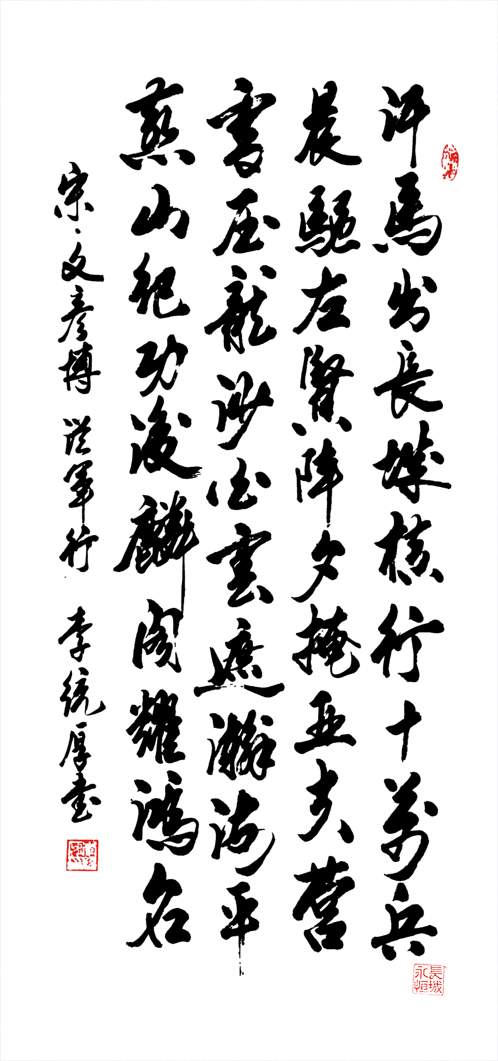 汗馬出長城横行十萬兵
晨驅左賢陣夕掩亞夫營
雪压龍沙白雲遮瀚海平
燕山紀功後麟閣耀鴻名
宋、文彥博 從軍行 李統厚書
長城永恒